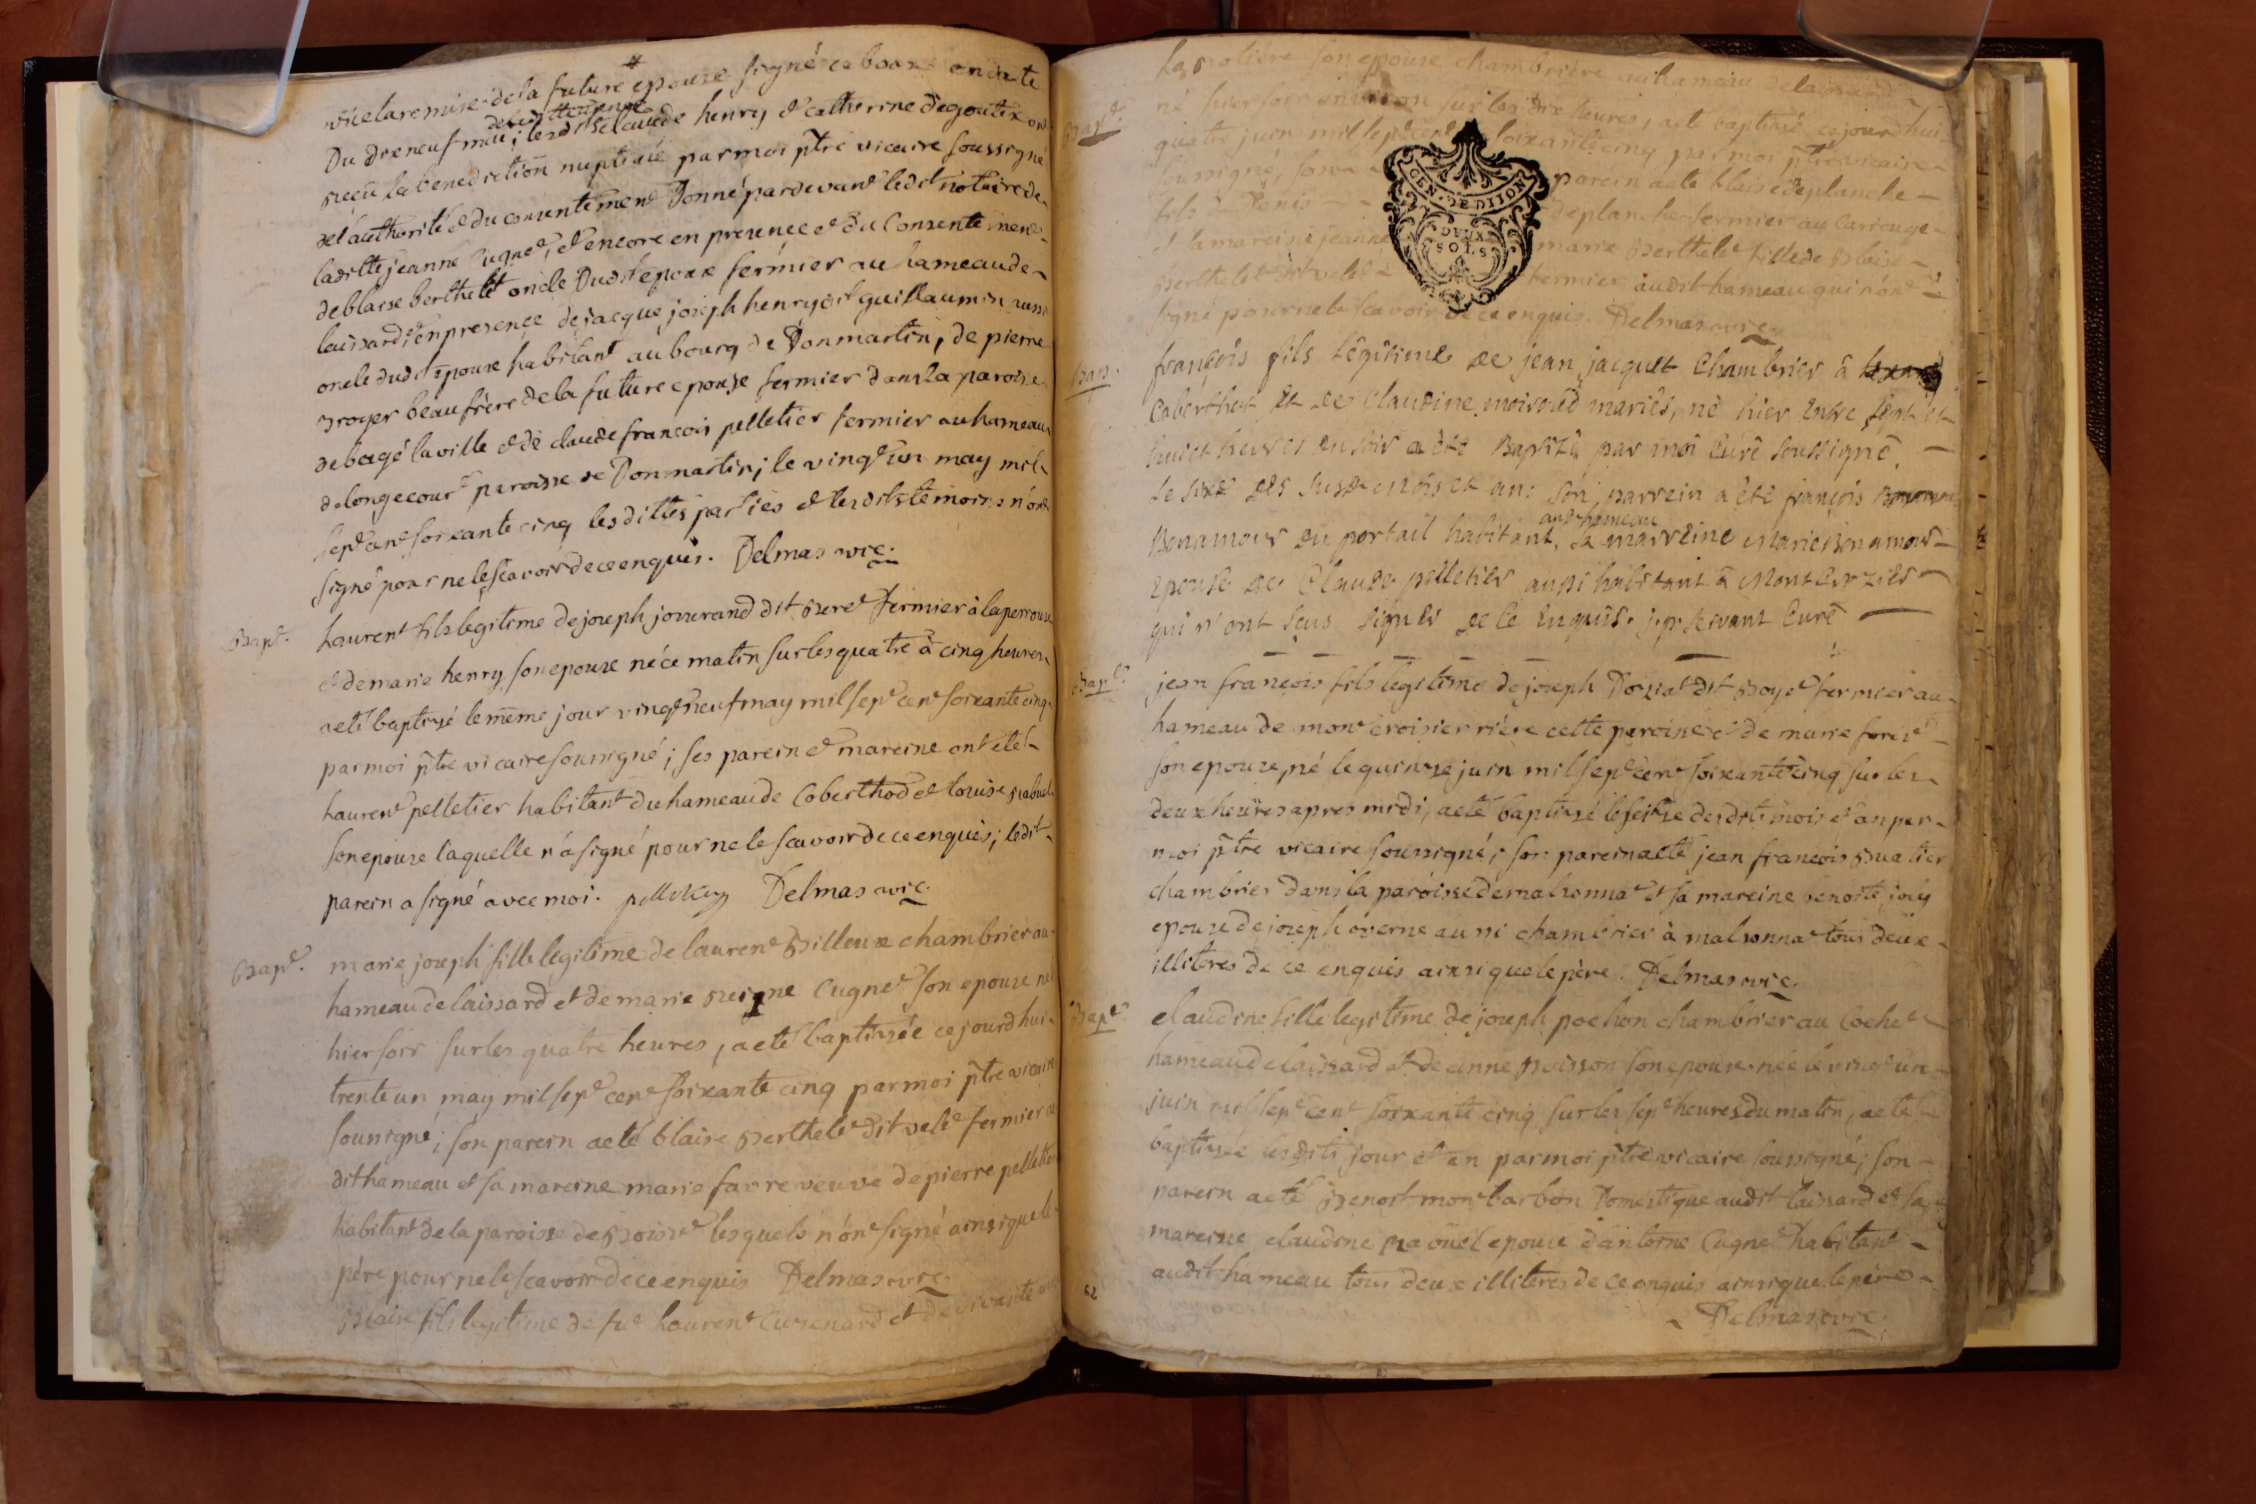 de la future epouse signé ce boar en date
Du dixneuf mai; lesdits Claude henry et catherine degoutex ont
de cette annee
reçeu la benediction nuptiale par moi ptre vicaire soussigné
de l'authorité et du consentement Donné pardevant ledit notaire de
laditte jeanne Cugnet, et encore en presence et du Consentement
de blaise berthelet oncle Dudit epoux fermier au hameau de
laissard; en presence de jacque joseph henry dit guillaumin aussi
oncle dudit epoux habitant au bourg de Donmartin, de pierre
broyer beaufrère de la future epouse fermier dans la paroisse
de bagé la ville et de claude francois pelletier fermier au hameau
de longecourt paroisse de Donmartin; le vingt un may mil
sept cent soixante cinq lesdittes parties et lesdits témoins n'ont
signé pour ne le sçavoir de ce enquis. Delmas vic.
Bapt. Laurent fils legitime de joseph jouurand dit fermier à la perrouse
et de marie henry son epouse né ce matin sur les quatre à cinq heures
a eté baptisé le même jour vingt neuf may mil sept cent soixante cinq
par moi ptre vicaire soussigné; ses parein et mareine ont eté
Laurent pelletier habitant du hameau de Coberthod et louise
son epouse laquelle n'a signé pour ne le scavoir de ce enquis; ledit
parein a signé avec moi. pelletier Delmas vic.
Bapt. marie joseph fille legitime de laurent Pilloux chambrier au
hameau de laissard et de marie reigne Cugnet son epouse née
hier soir sur les quatre heures, a eté baptisée ce jourd'hui
trente un may mil sept cent soixante cinq par moi ptre vicaire
soussigné; son parein a eté blaise Berthelet dit velet fermier au
dit hameau et sa mareine marie favre veuve de pierre pelletier
habitant de la paroisse de Boisset lesquels n'ont signé ainsi que le
père pour ne le scavoir de ce enquis Delmas vic.
Blaise fils legitime de fut Laurent Curenard et de
son epouse chambrière au hameau de laissard
Bapt. né hier soir environ sur les dix heures, a eté baptisé ce jourd'hui
quatre juin mil sept cent soixante cinq par moi ptre vicaire
soussigné, son parein a eté blaise deplanche
fils deplanche fermier au Carrouge
et la mareine jeanne marie Berthelet fille de Blaise
Berthelet dit velet fermier audit hameau qui n'ont
signé pour ne le scavoir de ce enquis. Delmas vic.
GEN. DE DIJON
DEUX
SOLS
Bap. françois fils légitime de jean jacquet Chambrier à
Coberthot et de Claudine moiroud mariés, né hier entre sept et
huict heures du soir a été Baptizé par moi Curé soussigné.
le six des susd. mois et an: son parrein a été françois
Bonamour du portail habitant, sa marreine Marie Bonamour
audt hameau
Epouse de Claude pelletier aussi habitant à Mont Croziér
qui n'ont sçus signer de ce Enquis. servant Curé
Bapt. jean francois fils legitime de joseph dit Boyet fermier au
hameau de mont croisier rière cette paroisse et de marie foret
son epouse, né le quinze juin mil sept cent soixante cinq sur les
deux heures apres midi, a eté baptisé le seize desdits mois et an par
moi ptre vicaire soussigné; son parein a eté jean francois Buatier
chambrier dans la paroisse de malsonnat et sa mareine benoite joly
epouse de joseph overne aussi chambrier à malsonnat tous deux
illiteres de ce enquis ainsi que le père. Delmas vic.
Bapt. claudine fille legitime de joseph pochon chambrier au Cochet
hameau de laissard et de anne Buisson son epouse née le vingt un
juin mil sept cent soixante cinq sur les sept heures du matin, a eté
baptisée lesdits jour et an par moi ptre vicaire soussigné; son
parein a eté Benoit mont barbon Domestique audit laissard et sa
mareine claudine epouse d'antoine Cugnet habitant
audit hameau tous deux illiteres de ce enquis ainsi que le père
Delmas vic.
62